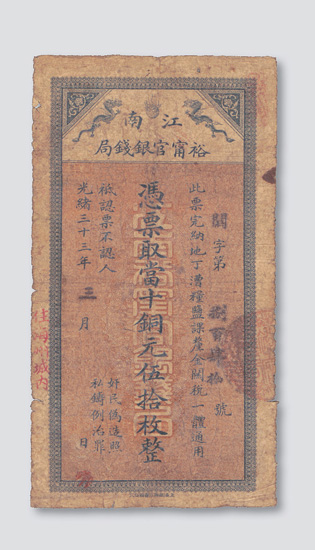 江南
裕甯官銀錢局
字第
號
此票完納地丁漕糧鹽課釐金關稅一體通用
憑票取當十銅元伍拾枚整
祗認票不認人
光緒三十三年 三 月 日
奸民偽造照
私鑄例治罪